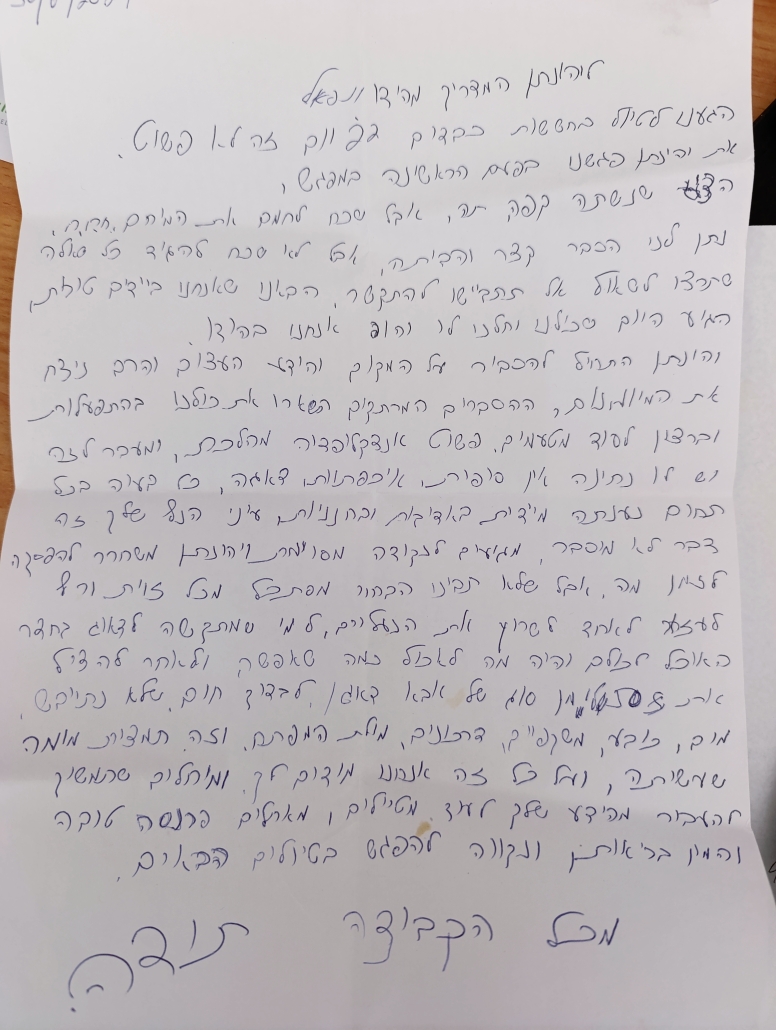 ליהונתן המדריך מהודו ונפאל
הגענו לטיול בחששות כבדים 23 יום זה לא פשוט.
את יהונתן פגשנו בפעם הראשונה במפגש,
שנשתה קפה, תה, אבל שכח לחמם את המיחם.
נתן לנו הסבר קצר והביתה, אבל לא שכח להגיד כל שאלה
שתרצו לשאול אל תתביישו להתקשר, הבאנו שאנחנו בידים טובות,
הגיע היום שכולנו וחלנו לו והופ אנחנו בהודו.
יהונתן התחיל להסביר על המקום והידע העצום והרב ניצח
את המיומנות, ההסברים המרתקים השארו את כולנו בהתפעלות
וברצון לעוד מטעמים. פשוט אנציקלופדיה מהלכת, ומעבר לזה
יש לו נתינה אין סופית, איכפתיות, דאגה, כל בעיה בכל
תחום נענתה מיידית באדיבות ובחנניות, עיני הנץ שלך זה
דבר לא מוסבר, מגיעים לנקודה מסויימת ויהונתן משחרר להפסקה
לזמן מה, אבל שלא תבינו הבחור מסתכל מכל זוית ורץ
לעזור לאחד לשרוץ את הנעליים, למי שמתקשה לדאוג בחדר
האוכל לכולם יהיה מה לאכול כמה שאפשר, ולאחר להציל
את מן סוג של אבא דאגן, לבדוק חום, שלא נתייבש,
מים, כובע, משקפיים, דרכונים, מילת המפתח. וזה תמצית מומה
שעשיתה, ועל כל זה אנחנו מודים לך. ומיחלים שתמשיך
להעביר מהידע שלך לעוד מטיילים, מאחלים פרנסה טובה
והמון בריאות, ונקווה להפגש בטיולים הבאים.
מכל הקבוצה תודה.